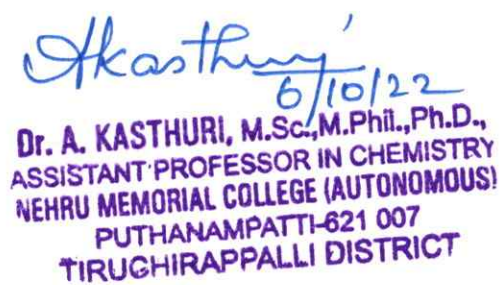 AKasthuri
6/10/22
Dr. A. KASTHURI, M.Sc.,M.Phil.,Ph.D.,
ASSISTANT PROFESSOR IN CHEMISTRY
NEHRU MEMORIAL COLLEGE (AUTONOMOUS)
PUTHANAMPATTI-621 007
TIRUCHIRAPPALLI DISTRICT